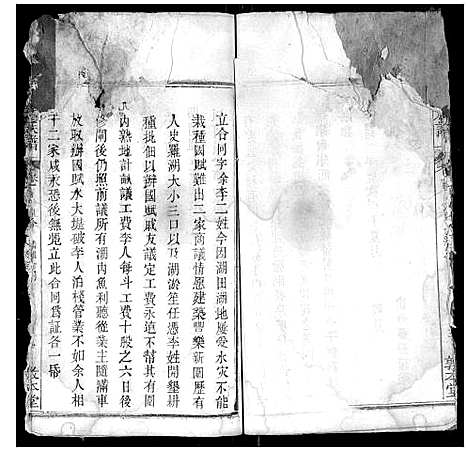 立合同字余李二姓今因湖田湖地屢受水灾不能
栽種因賦難出二家商議情愿建築豐樂新圍歷有
人史羅湖大小三口以乃湖淤筀任憑李姓開墾耕
種批佃以辦國賦戚友議定工費永遠不幇其有圍
內熟地計畝議工費李人每斗工費十股之六日後
修閘後仍照前議所有湖內魚利聽從業主隨滿車
放取辦國賦水大堤破李人泊棧管業不如余人相
干二家咸永恐後無凴立此合同爲証各一昏
族譜
敦本堂
敦本堂